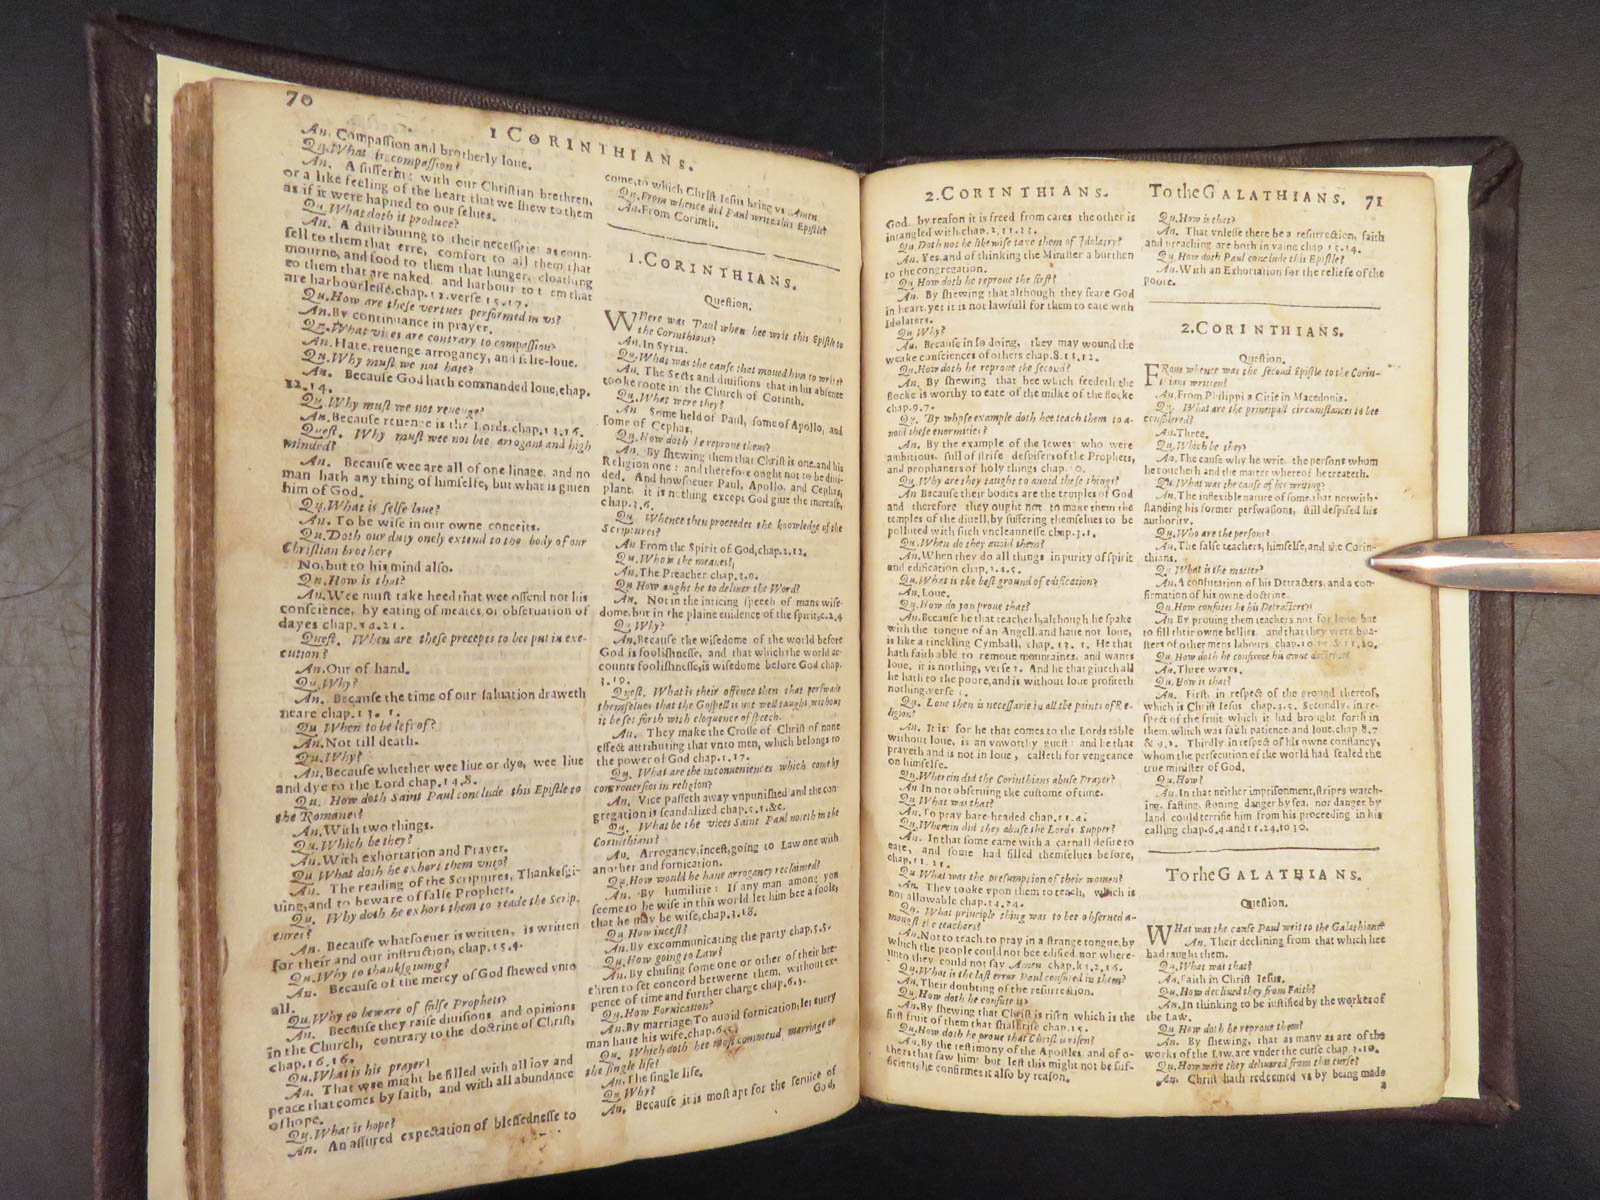 70
1 CORINTHIANS.
An. Compassion and brotherly loue.
Qu. What is compassion?
An. A suffering with our Christian brethren,
or a like feeling of the heart that we shew to them
as if it were hapned to our selues.
Qu. What doth it produce?
An. A distributing to their necessitie: as coun-
sell to them that erre, comfort to all them that
mourne, and food to them that hunger, cloathing
to them that are naked, and harbour to them that
are harbourlesse, chap. 12. verse 15. 17.
Qu. How are these vertues performed in vs?
An. By continuance in prayer.
Qu. What vices are contrary to compassion?
An. Hate, reuenge, arrogancy, and selfe-loue.
Qu. Why must we not hate?
An. Because God hath commanded loue, chap.
12. 14.
Qu. Why must we not reuenge?
An. Because reuenge is the Lords, chap.
Quest. Why must wee not bee arrogant and high
minded?
An. Because wee are all of one linage, and no
man hath any thing of himselfe, but what is giuen
him of God.
Qu. What is selfe loue?
An. To be wise in our owne conceits.
Qu. Doth our duty onely extend to the body of our
Christian brother?
No, but to his mind also.
Qu. How is that?
An. Wee must take heed that wee offend not his
conscience, by eating of meates, or obseruation of
dayes chap. 14. 21.
Quest. When are these precepts to bee put in exe-
cution?
An. Out of hand.
Qu. Why?
An. Because the time of our saluation draweth
neare chap. 13. 1.
Qu. When to be left of?
An. Not till death.
Qu. Why?
An. Because whether wee liue or dye, wee liue
and dye to the Lord chap. 14. 8.
Qu. How doth Saint Paul conclude this Epistle to
the Romanes?
An. With two things.
Qu. Which be they?
An. With exhortation and Prayer.
Qu. What doth he exhort them vnto?
An. The reading of the Scriptures, Thanksgi-
uing, and to beware of false Prophets.
Qu. Why doth he exhort them to reade the Scrip-
tures?
An. Because whatsoeuer is written, is written
for their and our instruction, chap. 15. 4.
Qu. Why to thanksgiuing?
An. Because of the mercy of God shewed vnto
all.
Qu. Why to beware of false Prophets?
An. Because they raise diuisions and opinions
in the Church, contrary to the doctrine of Christ,
chap. 16. 16.
Qu. What is his prayer?
An. That wee might be filled with all ioy and
peace that comes by faith, and with all abundance
of hope.
Qu. What is hope?
An. An assured expectation of blessednesse to
come, to which Christ Iesus bring vs Amen.
Qu. From whence did Paul write this Epistle?
An. From Corinth.
1. CORINTHIANS.
Question.
WHere was Paul when hee writ this Epistle to
the Corinthians?
An. In Syria.
Qu. What was the cause that moued him to write?
An. The Sects and diuisions that in his absence
tooke roote in the Church of Corinth.
Qu. What were they?
An Some held of Paul, some of Apollo, and
some of Cephas.
Qu. How doth he reproue them?
An. By shewing them that Christ is one, and his
Religion one: and therefore ought not to be diui-
ded. And howsoeuer Paul, Apollo, and Cephas,
plant, it is nothing except God giue the increase,
chap. 3. 6.
Qu. Whence then proceedes the knowledge of the
Scriptures?
An From the Spirit of God, chap. 2. 12.
Qu. Who is the meanes?
An. The Preacher chap.
Qu How ought he to deliuer the Word?
An. Not in the inticing speech of mans wise-
dome, but in the plaine euidence of the spirit, c. 2. 4
Qu Why?
An. Because the wisedome of the world before
God is foolishnesse, and that which the world ac-
counts foolishnesse, is wisedome before God chap.
3. 19.
Quest. What is their offence then that perswade
themselues that the Gospell is not well taught, without
it be set forth with eloquence of speech.
An. They make the Crosse of Christ of none
effect attributing that vnto men, which belongs to
the power of God chap. 1. 17.
Qu. What are the inconueniences which come by
controuersies in religion?
An. Vice passeth away vnpunished and the con-
gregation is scandalized chap. 5. 1. &c.
Qu. What be the vices Saint Paul noteth in the
Corinthians?
An. Arrogancy, incest, going to Law one with
another and fornication.
Qu. How would he haue arrogancy reclaimed?
An. By humilitie: If any man among you
seeme to be wise in this world let him bee a foole,
that he may be wise, chap. 3. 18.
Qu. How incest?
An. By excommunicating the party chap. 5. 5.
Qu. How going to Law?
An. By chusing some one or other of their bre-
thren to set concord betweene them, without ex-
pence of time and further charge chap. 6. 5.
Qu. How Fornication?
An. By marriage: To auoid fornication, let euery
man haue his wife, chap.
Qu. Which doth hee most commend marriage or
the single life?
An. The single life.
Qu Why?
An. Because it is most apt for the seruice of
God,
2. CORINTHIANS.
God, by reason it is freed from cares the other is
intangled with chap.
Qu. Doth not he likewise taxe them of Idolatry?
An. Yes, and of thinking the Minister a burthen
to the congregation.
Qu. How doth he reproue the first?
An. By shewing that although they feare God
in heart, yet it is not lawfull for them to eate with
Idolaters.
Qu. Why?
An. Because in so doing, they may wound the
weake consciences of others chap. 8. 11, 12.
Qu. How doth he reproue the second?
An. By shewing that hee which feedeth the
flocke is worthy to eate of the milke of the flocke
chap. 9. 7.
Qu. By whose example doth hee teach them to a-
uoid these enormities?
An. By the example of the Iewes: who were
ambitious, full of strife despisers of the Prophets,
and prophaners of holy things chap.
Qu. Why are they taught to auoid these things?
An Because their bodies are the temples of God
and therefore they ought not to make them the
temples of the diuell, by suffering themselues to be
polluted with such vncleannesse chap. 3. 1.
Qu. When do they auoid them?
An. When they do all things in purity of spirit
and edification chap. 1. 4. 5.
Qu. What is the best ground of edification?
An. Loue.
Qu. How do you proue that?
An. Because he that teacheth, although he spake
with the tongue of an Angell, and haue not loue,
is like a tinckling Cymball, chap. 13. 1. He that
hath faith able to remoue mountaines, and wants
loue, it is nothing, verse 2. And he that giueth all
he hath to the poore, and is without loue profiteth
nothing, verse
Qu. Loue then is necessarie in all the points of Re-
ligion?
An. It is: for he that comes to the Lords table
without loue, is an vnworthy guest: and he that
prayeth and is not in loue, calleth for vengeance
on himselfe.
Qu. Wherein did the Corinthians abuse Prayer?
An In not obseruing the custome of time.
Qu What was that?
An. To pray bare-headed chap. 11. 4.
Qu. Wherein did they abuse the Lords Supper?
An. In that some came with a carnall desire to
eate, and some had filled themselues before,
chap. 11. 21.
Qu. What was the presumption of their women?
An. They tooke vpon them to teach, which is
not allowable chap. 14. 24.
Qu. What principle thing was to bee obserued a-
mongst the teachers?
An. Not to teach to pray in a strange tongue, by
which the people could not bee edified, nor where-
unto they could not say Amen chap.
Qu. What is the last error Paul confuted in them?
An. Their doubting of the resurrection.
Qu. How doth he confute it?
An. By shewing that Christ is risen which is the
first fruit of them that shall rise chap. 15.
Qu. How doth he proue that Christ is risen?
An. By the testimony of the Apostles, and of o-
thers that saw him: but lest this might not be suf-
ficient, he confirmes it also by reason.
To the GALATHIANS. 71
Qu. How is that?
An. That vnlesse there be a resurrection, faith
and preaching are both in vaine chap 15. 14.
Qu. How doth Paul conclude this Epistle?
An. With an Exhortation for the reliefe of the
poore.
2. CORINTHIANS.
Question.
FRom whence was the second Epistle to the Corin-
thians written?
An. From Philippi a Citie in Macedonia.
Qu. What are the principall circumstances to bee
considered?
An. Three.
Qu. Which be they?
An. The cause why he writ, the persons whom
he toucheth and the matter whereof he treateth.
Qu. What was the cause of his writing?
An. The inflexible nature of some, that notwith-
standing his former perswasions, still despised his
authority.
Qu. Who are the persons?
An. The false teachers, himselfe, and the Corin-
thians.
Qu What is the matter?
An. A confutation of his Detracters, and a con-
firmation of his owne doctrine.
Qu. How confutes he his Detracters?
An By prouing them teachers not for loue but
to fill their owne bellies, and that they were boa-
sters of other mens labours, chap.
Qu. How doth he confirme his owne doctrine?
An. Three wayes.
Qu. How is that?
An. First, in respect of the ground thereof,
which is Christ Iesus chap. 4. 5. Secondly, in re-
spect of the fruit which it had brought forth in
them, which was faith patience and loue, chap. 8. 7
& 9. 2. Thirdly, in respect of his owne constancy,
whom the persecution of the world had sealed the
true minister of God.
Qu. How?
An. In that neither imprisonment, stripes watch-
ing, fasting, stoning danger by sea, nor danger by
land could terrifie him from his proceeding in his
calling chap. 6. 4. and 11. 24. to 30.
To the GALATHIANS.
Question.
WHat was the cause Paul writ to the Galathians?
An. Their declining from that which hee
had taught them.
Qu. What was that?
An. Faith in Christ Iesus.
Qu. How declined they from Faith?
An. In thinking to be iustified by the workes of
the Law.
Qu How doth he reproue them?
An. By shewing, that as many as are of the
workes of the Law, are vnder the curse chap. 3. 10.
Qu. How were they deliuered from that curse?
An. Christ hath redeemed vs by being made
a